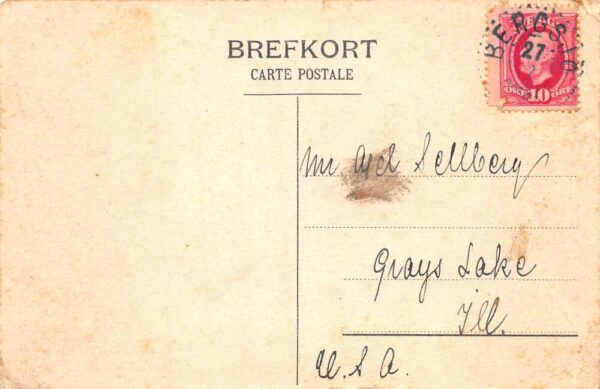 BREFKORT
CARTE POSTALE
BERGSJÖ
27
10
ÖRE ÖRE
Mr Axel Sellberg
Grays Lake
Ill.
U.S.A.